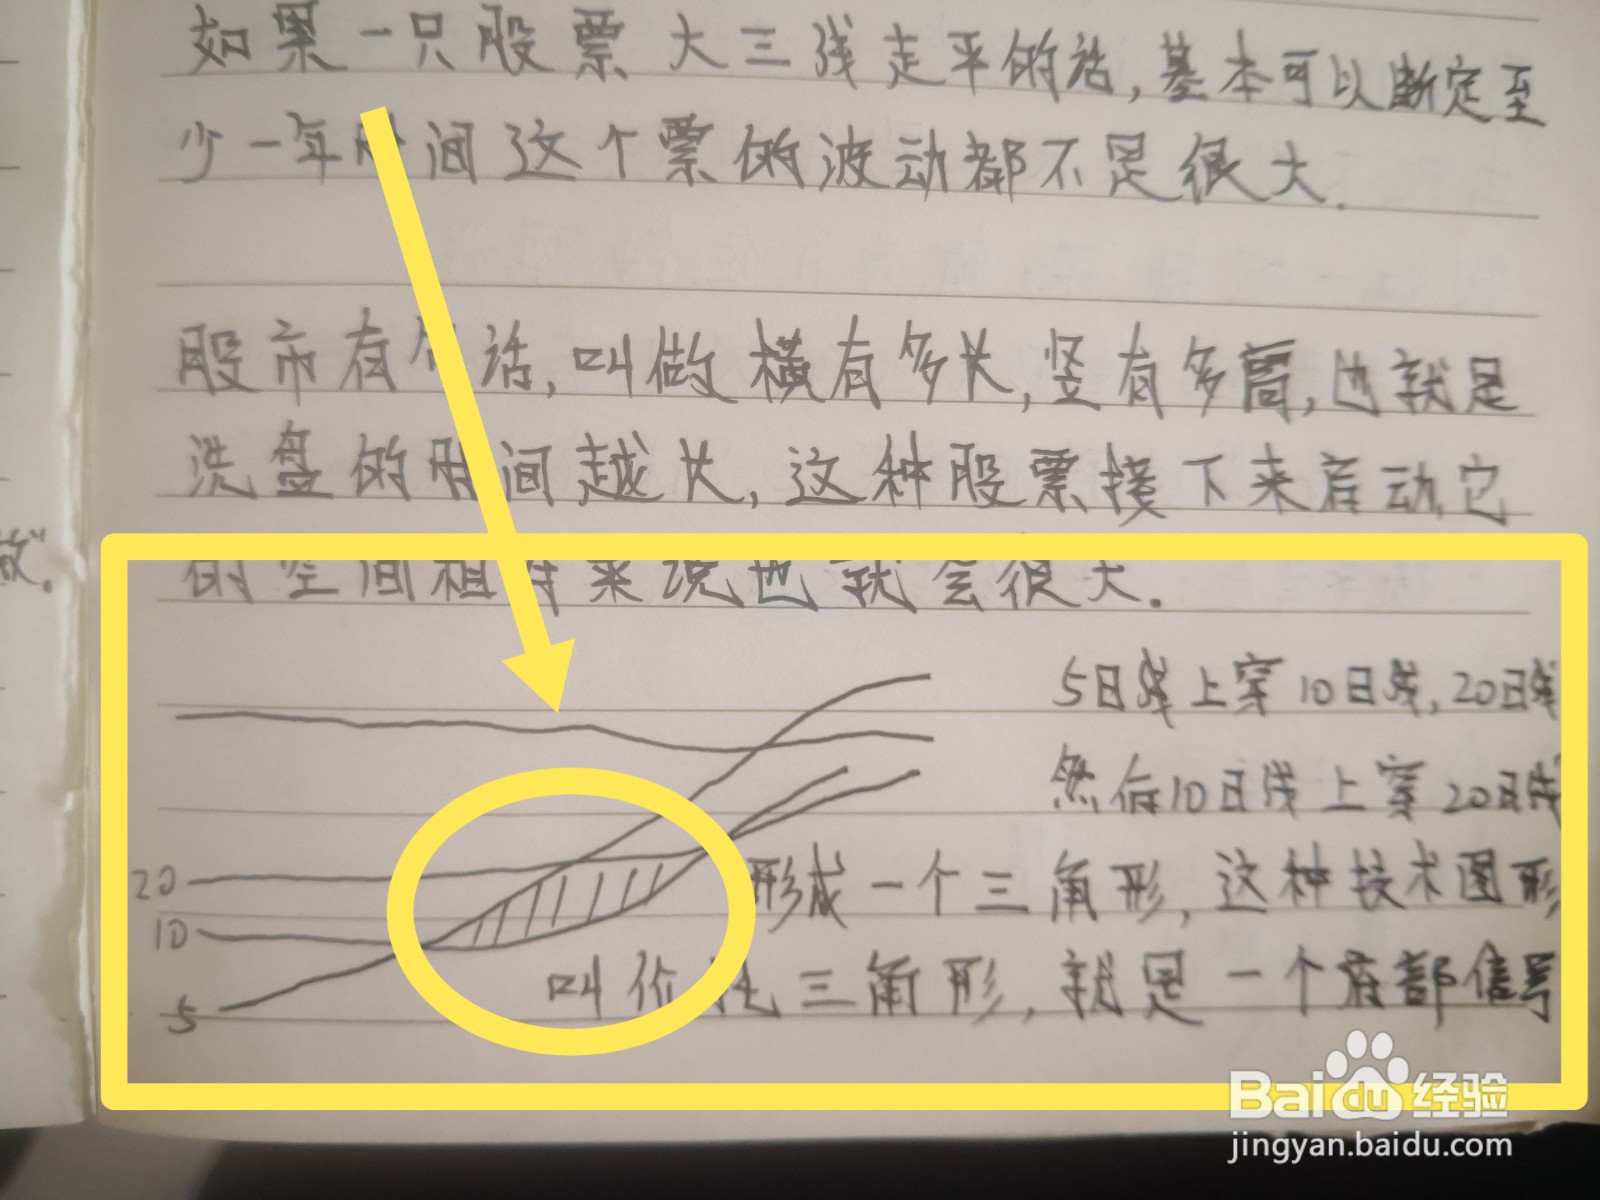 如果一只股票大三线走平的话,基本可以断定至
少一年时间这个票的波动都不是很大.
股市有句话,叫做横有多长,竖有多高,也就是
洗盘的时间越长,这种股票接下来启动它
放".
的空间相对来说也就会很大.
5日线上穿10日线,20日线
然后10日线上穿20日线
20
形成一个三角形,这种技术图形
10
叫价托三角形,就是一个底部信号
5
Baidu经验
jingyan.baidu.com